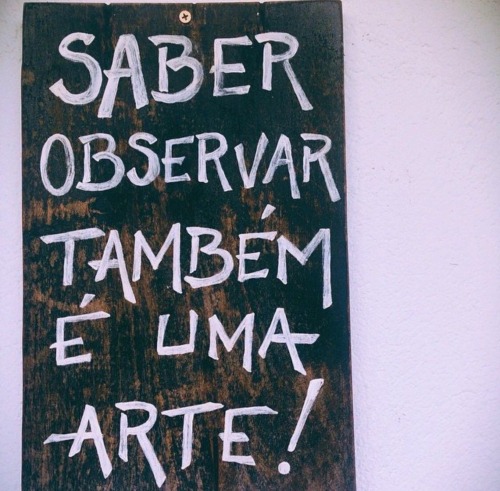 SABER
OBSERVAR
TAMBÉM
É UMA
ARTE!